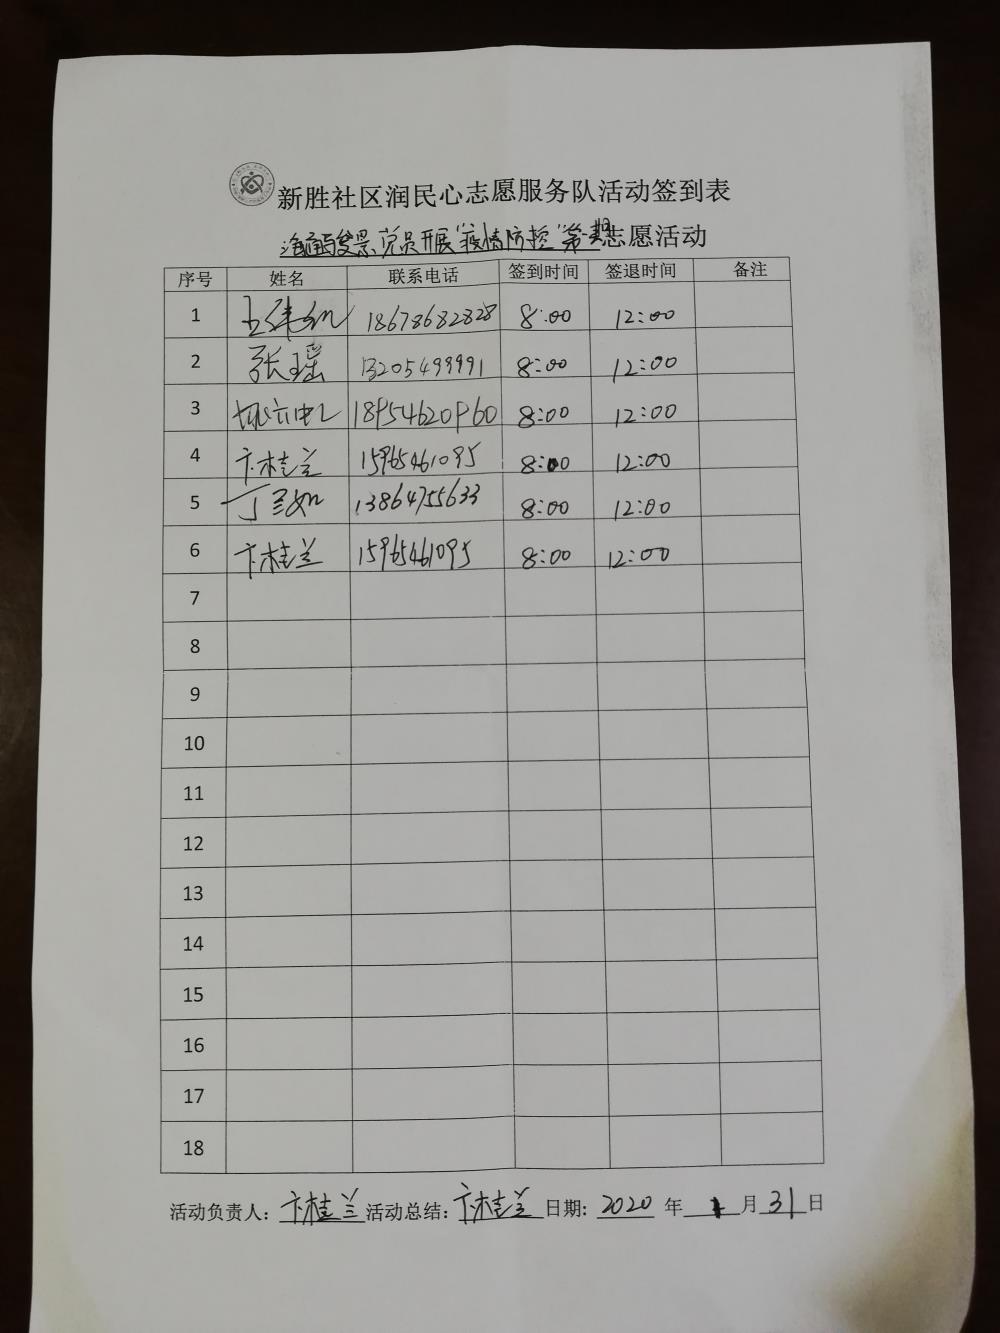 新胜社区润民心志愿服务队活动签到表
党员开展"疫情防控"第一期志愿活动
序号 姓名 联系电话 签到时间 签退时间 备注
1 18678682828 8:00 12:00
2 张瑶 13205499991 8:00 12:00
3 18954620960 8:00 12:00
4 卞桂兰 15965461095 8:00 12:00
5 丁 13864755633 8:00 12:00
6 卞桂兰 15965461095 8:00 12:00
7
8
9
10
11
12
13
14
15
16
17
18
活动负责人: 卞桂兰 活动总结: 卞桂兰 日期: 2020 年 1 月 31 日